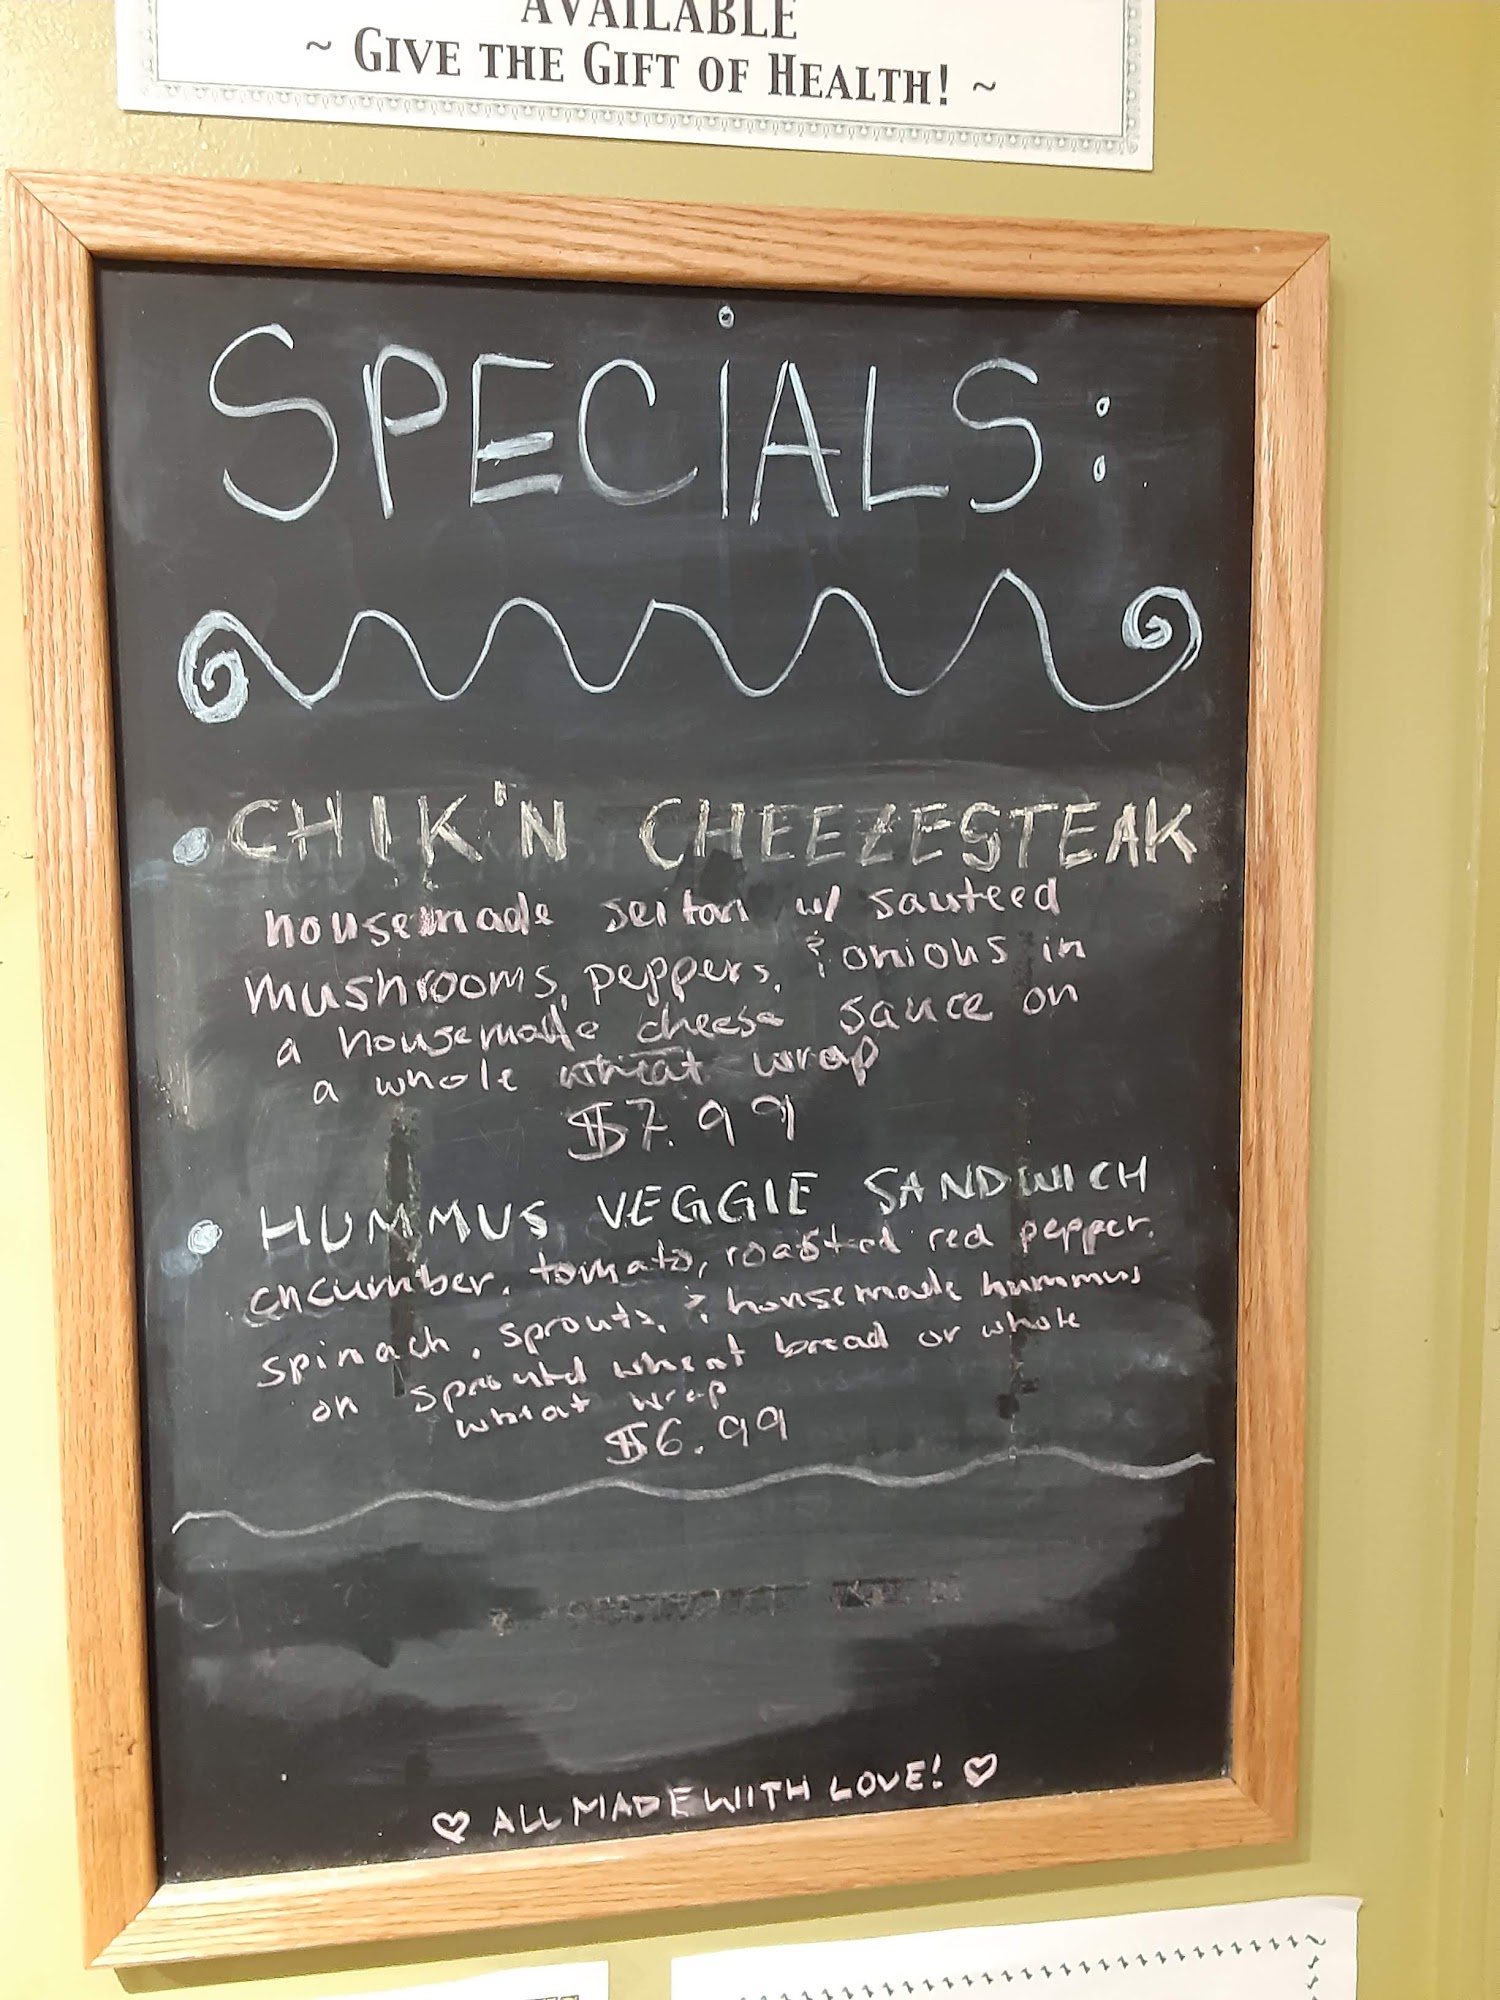 AVAILABLE
~ GIVE THE GIFT OF HEALTH! ~
SPECIALS:
• CHIK'N CHEEZESTEAK
housemade seitan w/ sauteed
mushrooms, peppers, & onions in
a housemade cheese sauce on
a whole wheat wrap
$7.99
• HUMMUS VEGGIE SANDWICH
cucumber, tomato, roasted red pepper,
spinach, sprouts, & housemade hummus
on sprouted wheat bread or whole
wheat wrap
$6.99
♡ ALL MADE WITH LOVE! ♡